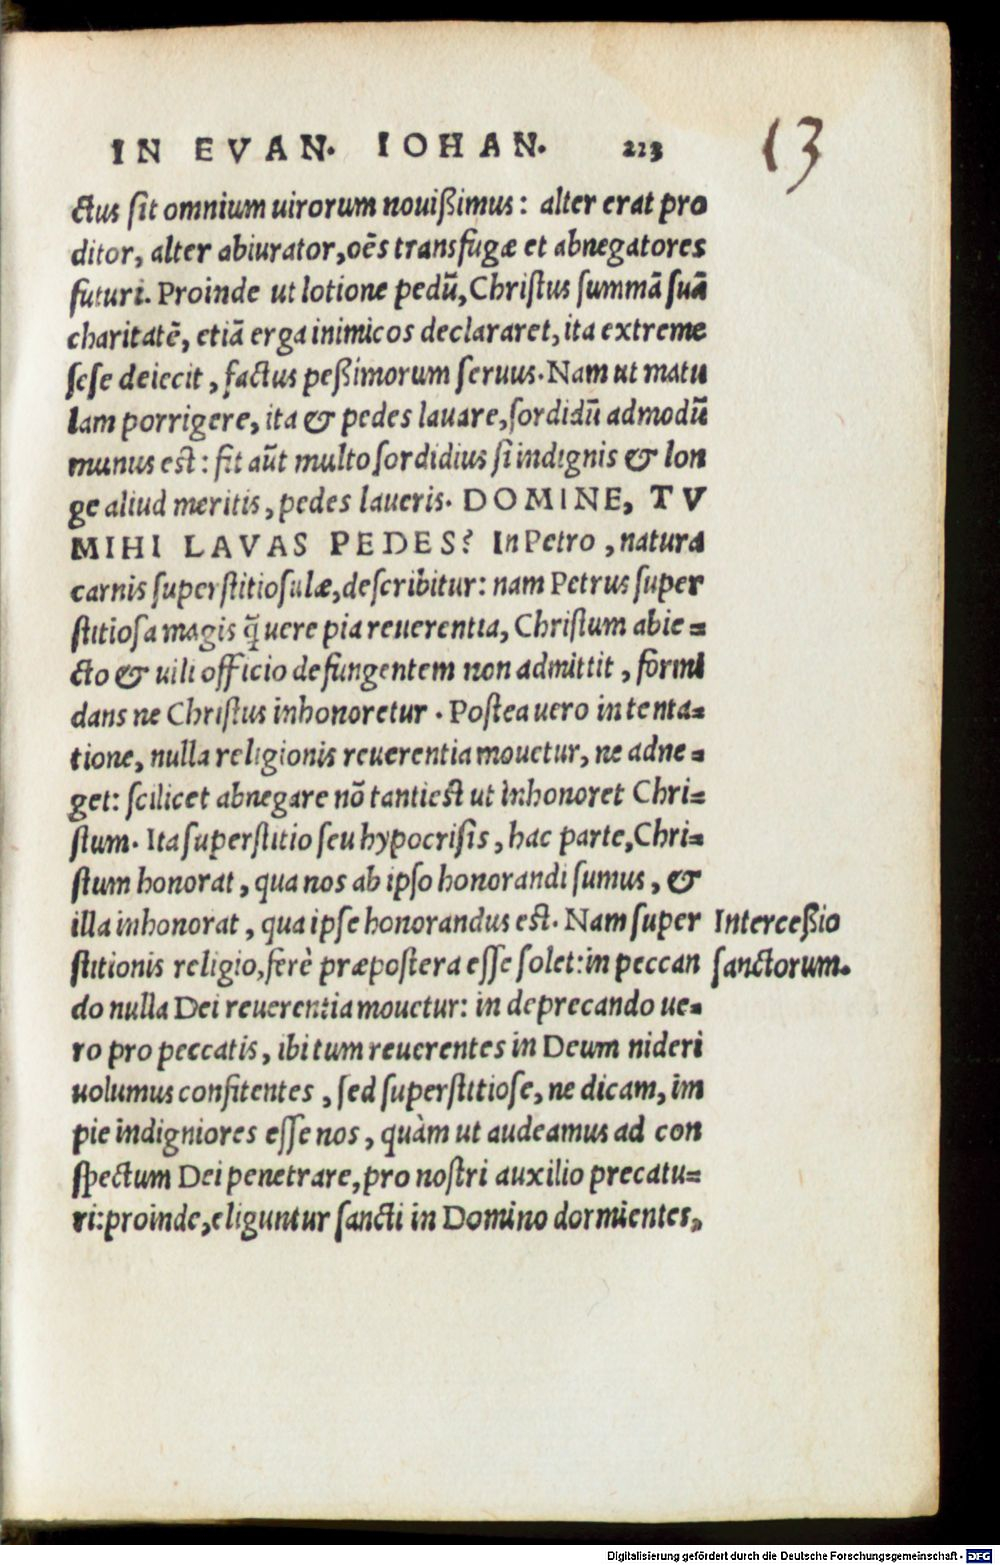 IN EVAN. IOHAN. 223
13
ctus sit omnium uirorum nouißimus: alter erat pro
ditor, alter abiurator, oẽs transfugæ et abnegatores
futuri. Proinde ut lotione pedũ, Christus summã suã
charitatẽ, etiã erga inimicos declararet, ita extreme
sese deiecit, factus peßimorum seruus. Nam ut matu
lam porrigere, ita & pedes lauare, sordidũ admodũ
munus est: fit aũt multo sordidius si indignis & lon
ge aliud meritis, pedes laueris. DOMINE, TV
MIHI LAVAS PEDES? In Petro, natura
carnis superstitiosulæ, describitur: nam Petrus super
stitiosa magis q̃ uere pia reuerentia, Christum abie=
cto & uili officio defungentem non admittit, formi
dans ne Christus inhonoretur. Postea uero in tenta=
tione, nulla religionis reuerentia mouetur, ne adne=
get: scilicet abnegare nõ tanti est ut inhonoret Chri=
stum. Ita superstitio seu hypocrisis, hac parte, Chri=
stum honorat, qua nos ab ipso honorandi sumus, &
illa inhonorat, qua ipse honorandus est. Nam super
stitionis religio, ferè præpostera esse solet: in peccan
do nulla Dei reuerentia mouetur: in deprecando ue=
ro pro peccatis, ibi tum reuerentes in Deum nideri
uolumus confitentes, sed superstitiose, ne dicam, im
pie indigniores esse nos, quàm ut audeamus ad con
spectum Dei penetrare, pro nostri auxilio precatu=
ri: proinde, eliguntur sancti in Domino dormientes,
Interceßio
sanctorum.
Digitalisierung gefördert durch die Deutsche Forschungsgemeinschaft - DFG